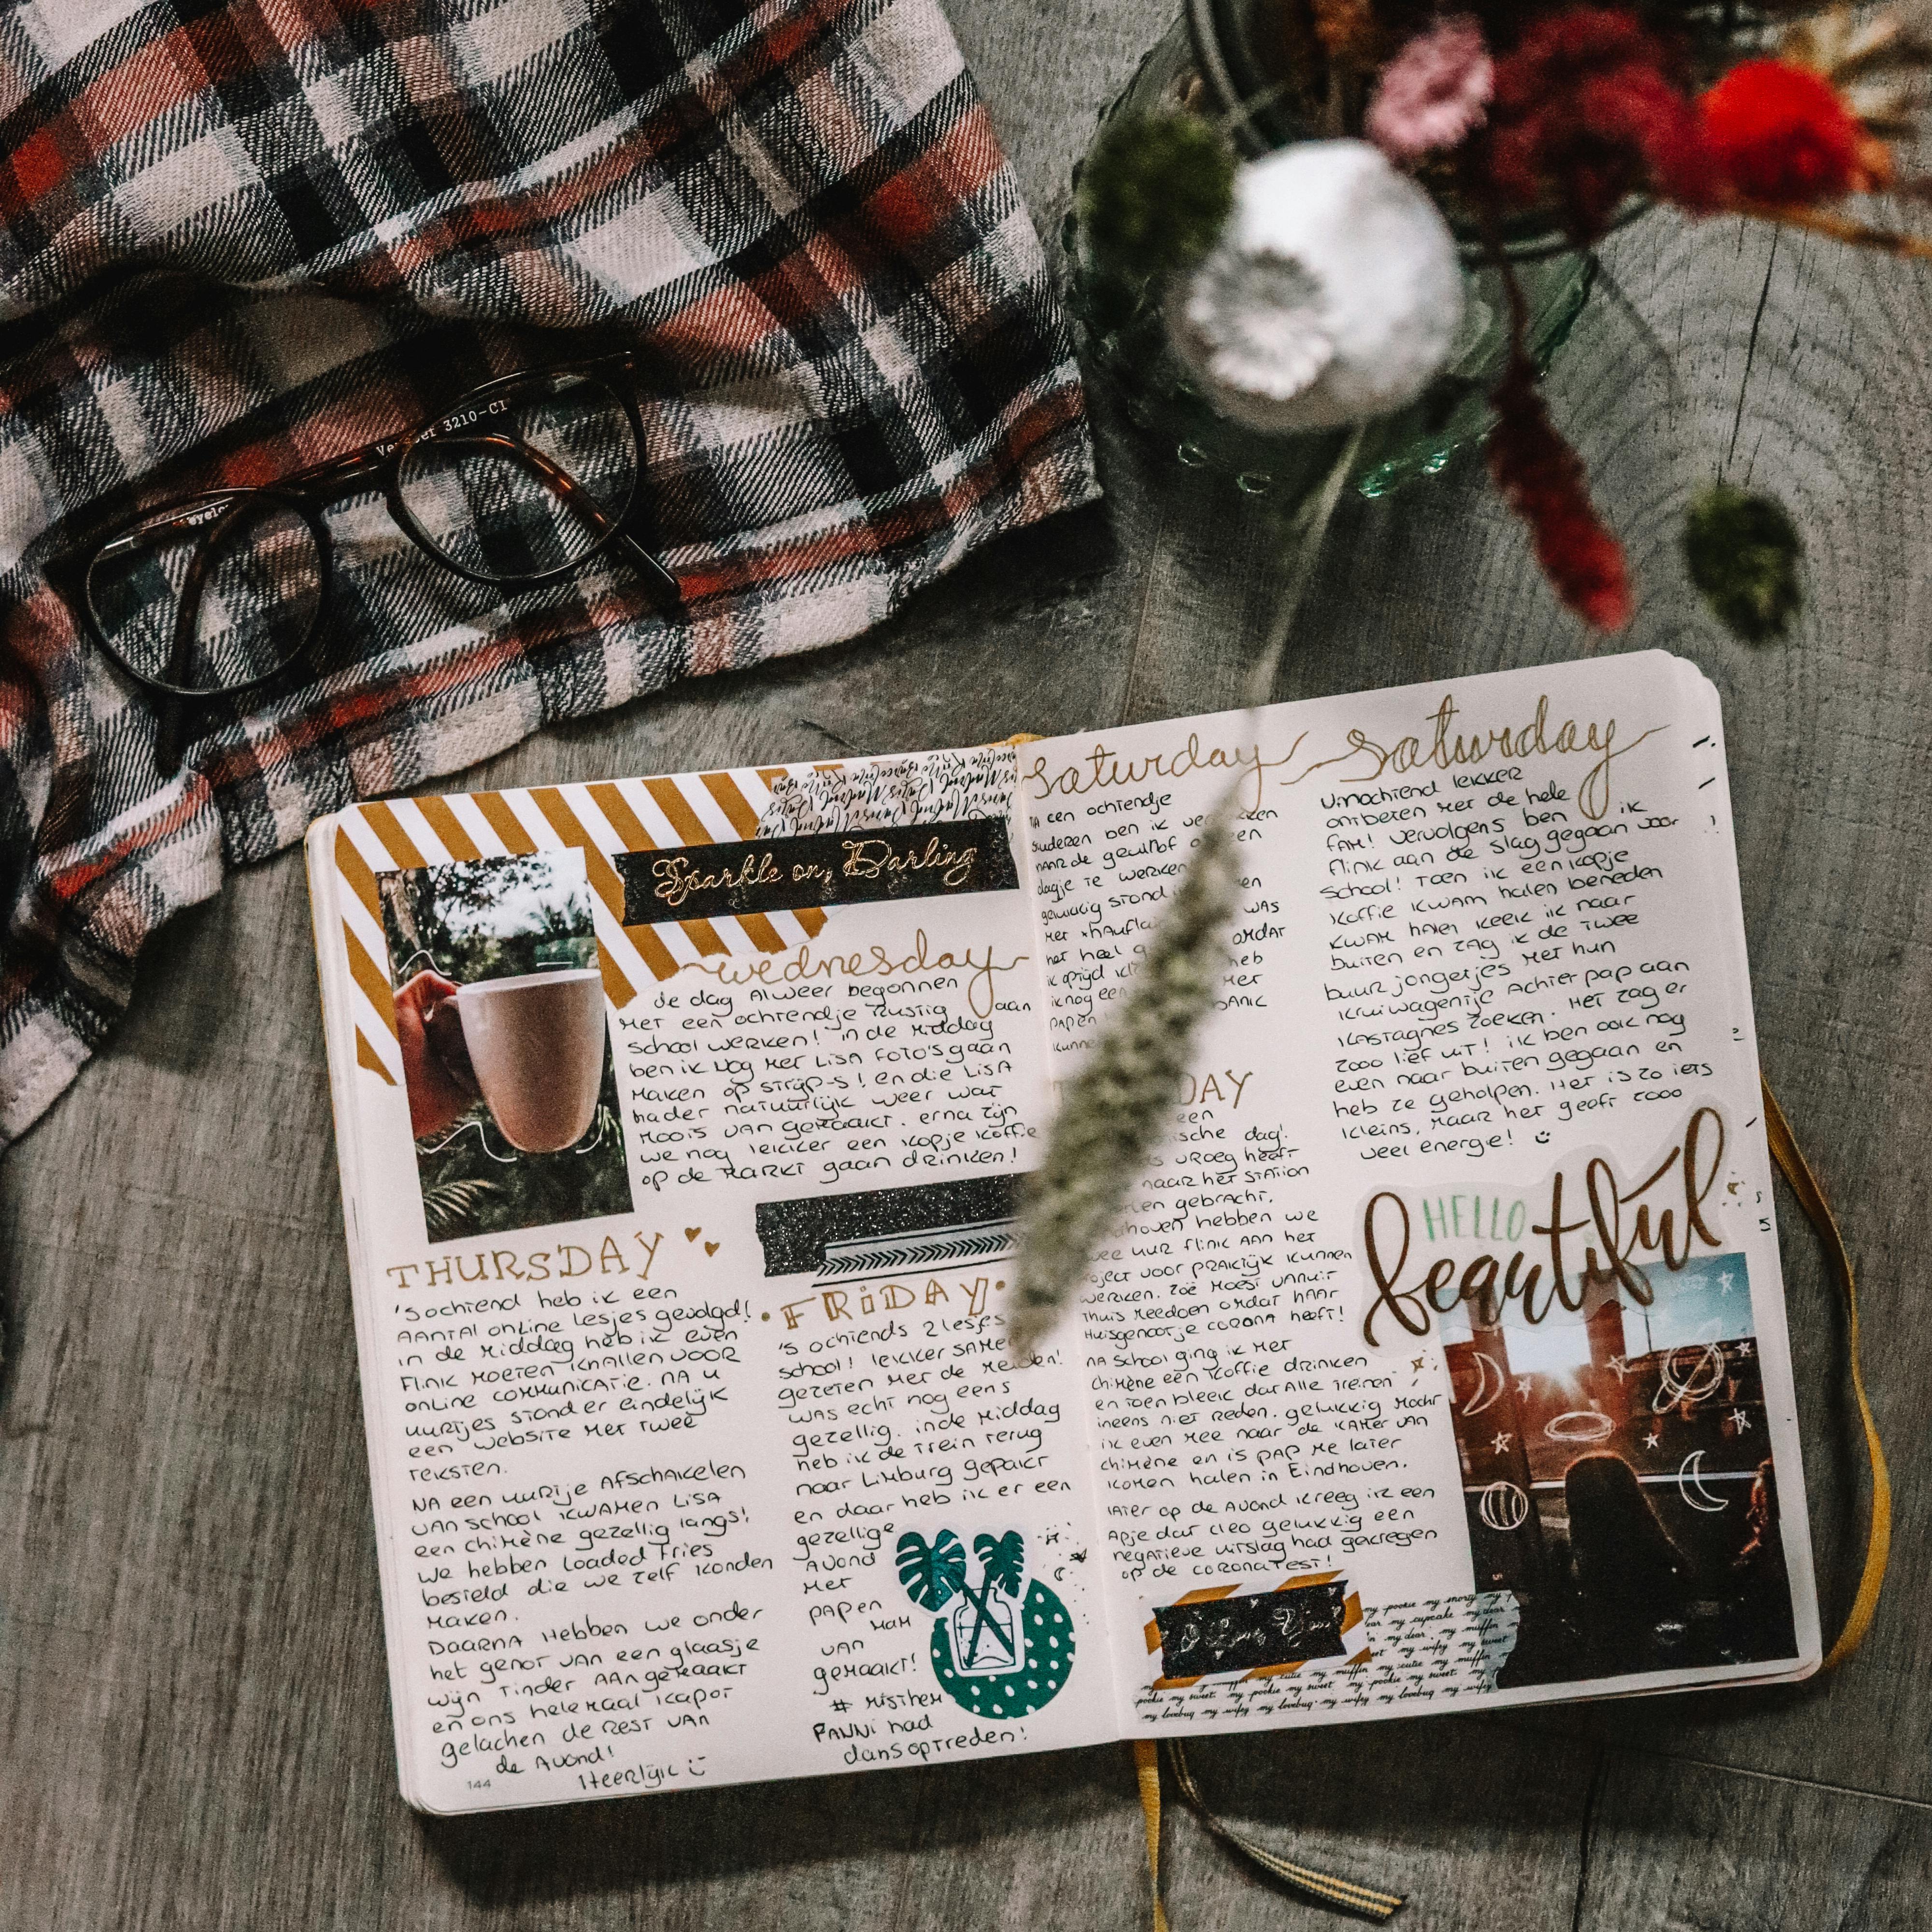 3210-C1
Sparkle on, Darling
wednesday
de dag Alweer begonnen
Met een ochtendje Rustig aan
school werken! in de Middag
ben ik nog Met Lisa foto's gaan
Maken op strijp-s! en die Lisa
had er natuurlijk weer wat
Moois van gemaakt. erna zijn
we nog lekker een kopje koffie
op de Markt gaan drinken!
THURSDAY
'sochtend heb ik een
AANTAl online lesjes gevolgd!
in de Middag heb ik even
flink Moeten knallen voor
online communicatie. NA u
uurtjes stond er eindelijk
een website Met twee
teksten.
NA een uurtje Afschakelen
van school kwamen Lisa
en chimène gezellig langs!
we hebben Loaded Fries
besteld die we zelf konden
Maken.
DAARNA Hebben we onder
het genot van een glaasje
wijn Tinder AAngemaakt
en ons helemaal kapot
gelachen de REST van
de Avond!
Heerlijk
144
FRIDAY
's ochtends 2 lesjes
school! lekker SAMEN
gezeten Met de Meiden!
was echt nog eens
gezellig. in de Middag
heb ik de trein terug
naar Limburg gepakt
en daar heb ik er een
gezellige
Avond
Met
pap en
MAM
van
gemaakt!
#
had
dansoptreden!
saturday
een ochtendje
ben ik
NAAR de
dagje te werken
gelukkig stond
WAS
Met
OMDAT
het heel
heb
ik altijd
Met
ik nog een
PAPEN
DAY
een
ische dag!
vroeg heeft
naar het station
gebracht.
hoven hebben we
uur flink AAN het
oject voor praktijk kunnen
werken. Zoë Moest vanuit
thuis Meedoen omdat haar
Huisgenootje corona heeft!
NA school ging ik Met
chimène een koffie drinken
en toen bleek dat Alle treinen
ineens niet reden. gelukkig Mocht
ik even Mee naar de KAMER VAN
chimène en is pap Me later
komen halen in Eindhoven.
later op de Avond kreeg ik een
Apje dat cleo gelukkig een
negatieve uitslag had gekregen
op de coronatest!
saturday
vanochtend lekker
ontbeten Met de hele
fam! vervolgens ben ik
flink aan de slag gegaan voor
school! Toen ik een kopje
koffie kwam halen beneden
kwam halen keek ik naar
buiten en zag ik de twee
buurjongetjes Met hun
kruiwagentje Achter pap aan
kastagnes zoeken. Het zag er
zooo lief uit! ik ben ook nog
even naar buiten gegaan en
heb ze geholpen. Het is zo iets
kleins, Maar het geeft zooo
veel energie!
HELLO
beautiful